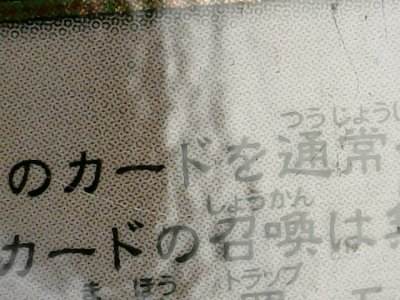 つうじょうし
のカードを通常
しょうかん
カードの召喚は
まほう トラップ